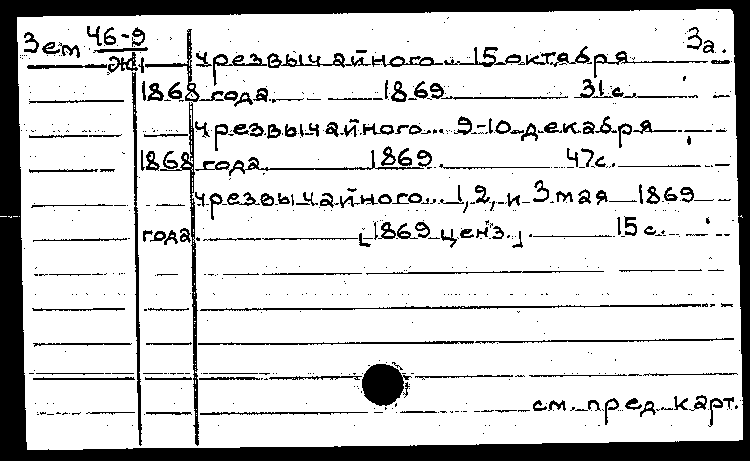 Зет 46-9 3а.
Ж1 чрезвычайного... 15 октября
1868 года. 1869. 31 с.
чрезвычайного... 9-10 декабря
1868 года. 1869. 47 с.
чрезвычайного... 1, 2, и 3 мая 1869
года. [1869 ценз.]. 15 с.
см. пред. карт.